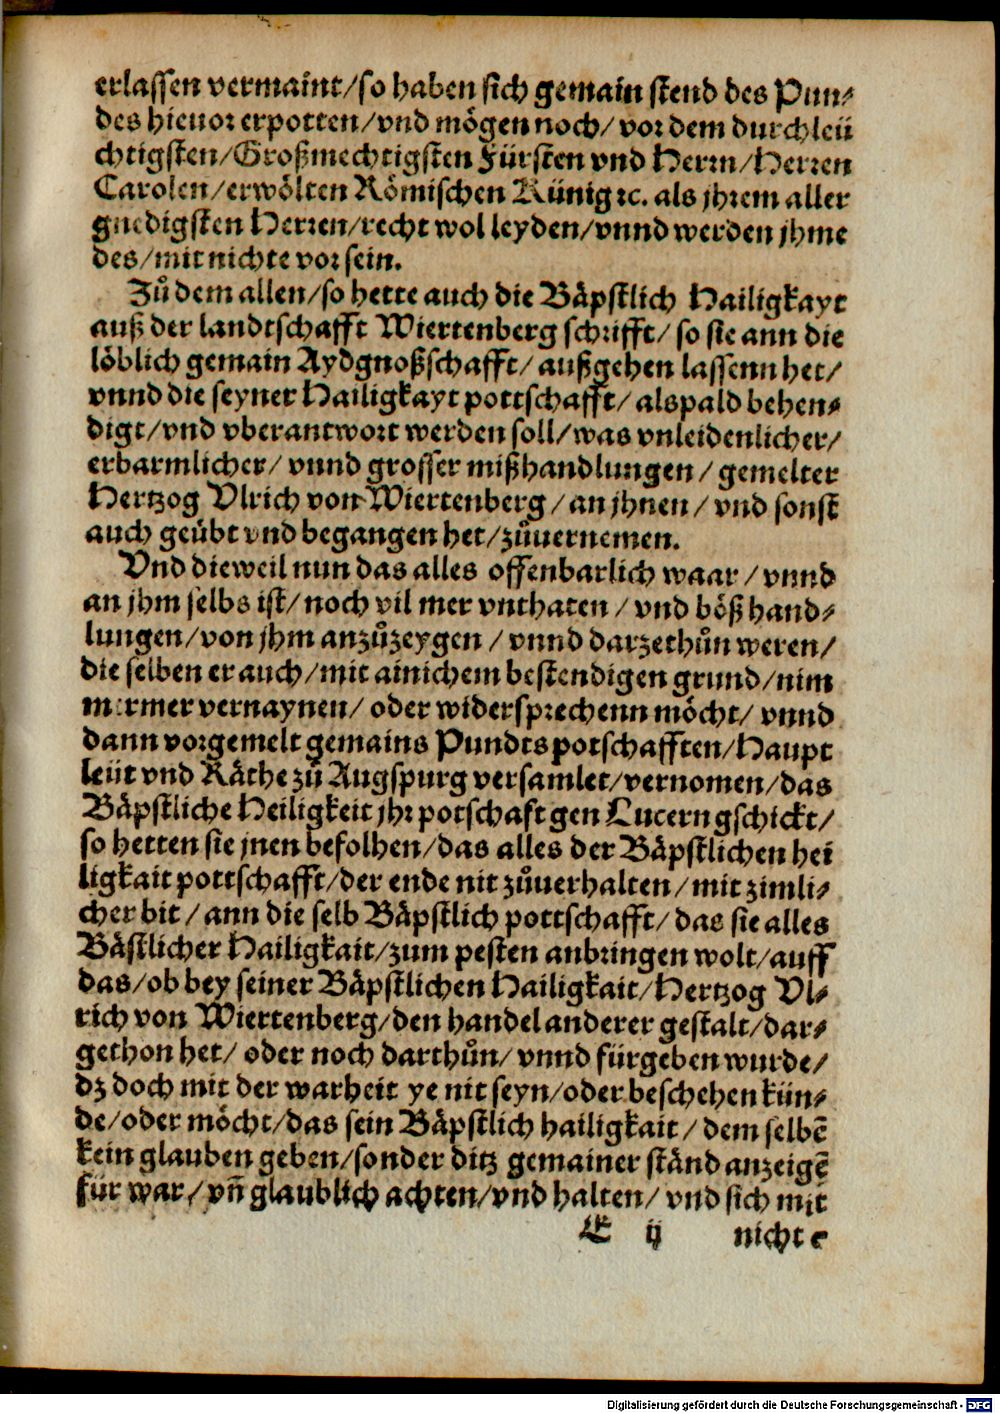 erlassen vermaint/so haben sich gemain stend des Pun⸗
des hieuor erpotten/vnd mögen noch/vor dem durchleü
chtigsten/Großmechtigsten Fürsten vnd Herrn/Herren
Carolen/erwölten Römischen Künig ꝛc. als jhrem aller
gnedigsten Herren/recht wol leyden/vnnd werden jhme
des/mit nichte vor sein.
Zů dem allen/so hette auch die Bäpstlich Hailigkayt
auß der landtschafft Wiertenberg schrifft/so sie ann die
löblich gemain Aydgnoßschafft/außgehen lassenn het/
vnnd die seyner Hailigkayt pottschafft/alspald behen⸗
digt/vnd vberantwort werden soll/was vnleidenlicher/
erbarmlicher/vnnd grosser mißhandlungen/gemelter
Hertzog Vlrich von Wiertenberg/an jhnen/vnd sonst
auch geübt vnd begangen het/zůuernemen.
Vnd dieweil nun das alles offenbarlich waar/vnnd
an jhm selbs ist/noch vil mer vnthaten/vnd böß hand⸗
lungen/von jhm anzůzeygen/vnnd darzethůn weren/
die selben er auch/mit ainichem bestendigen grund/nim
mermer vernaynen/oder widersprechenn möcht/vnnd
dann vorgemelt gemains Pundts potschafften/Haupt
leüt vnd Räthe zů Augspurg versamlet/vernomen/das
Bäpstliche Heiligkeit jhr potschaft gen Lucern gschickt/
so hetten sie jnen befolhen/das alles der Bäpstlichen hei
ligkait pottschafft/der ende nit zůuerhalten/mit zimli⸗
cher bit/ann die selb Bäpstlich pottschafft/das sie alles
Bästlicher Hailigkait/zum pesten anbringen wolt/auff
das/ob bey seiner Bäpstlichen Hailigkait/Hertzog Vl⸗
rich von Wiertenberg/den handel anderer gestalt/dar⸗
gethon het/oder noch darthůn/vnnd fürgeben wurde/
dz doch mit der warheit ye nit seyn/oder beschehen kün⸗
de/oder möcht/das sein Bäpstlich hailigkait/dem selbē
kein glauben geben/sonder ditz gemainer ständ anzeigē
für war/vn̄ glaublich achten/vnd halten/vnd sich mit
E ij nichte
Digitalisierung gefördert durch die Deutsche Forschungsgemeinschaft - DFG